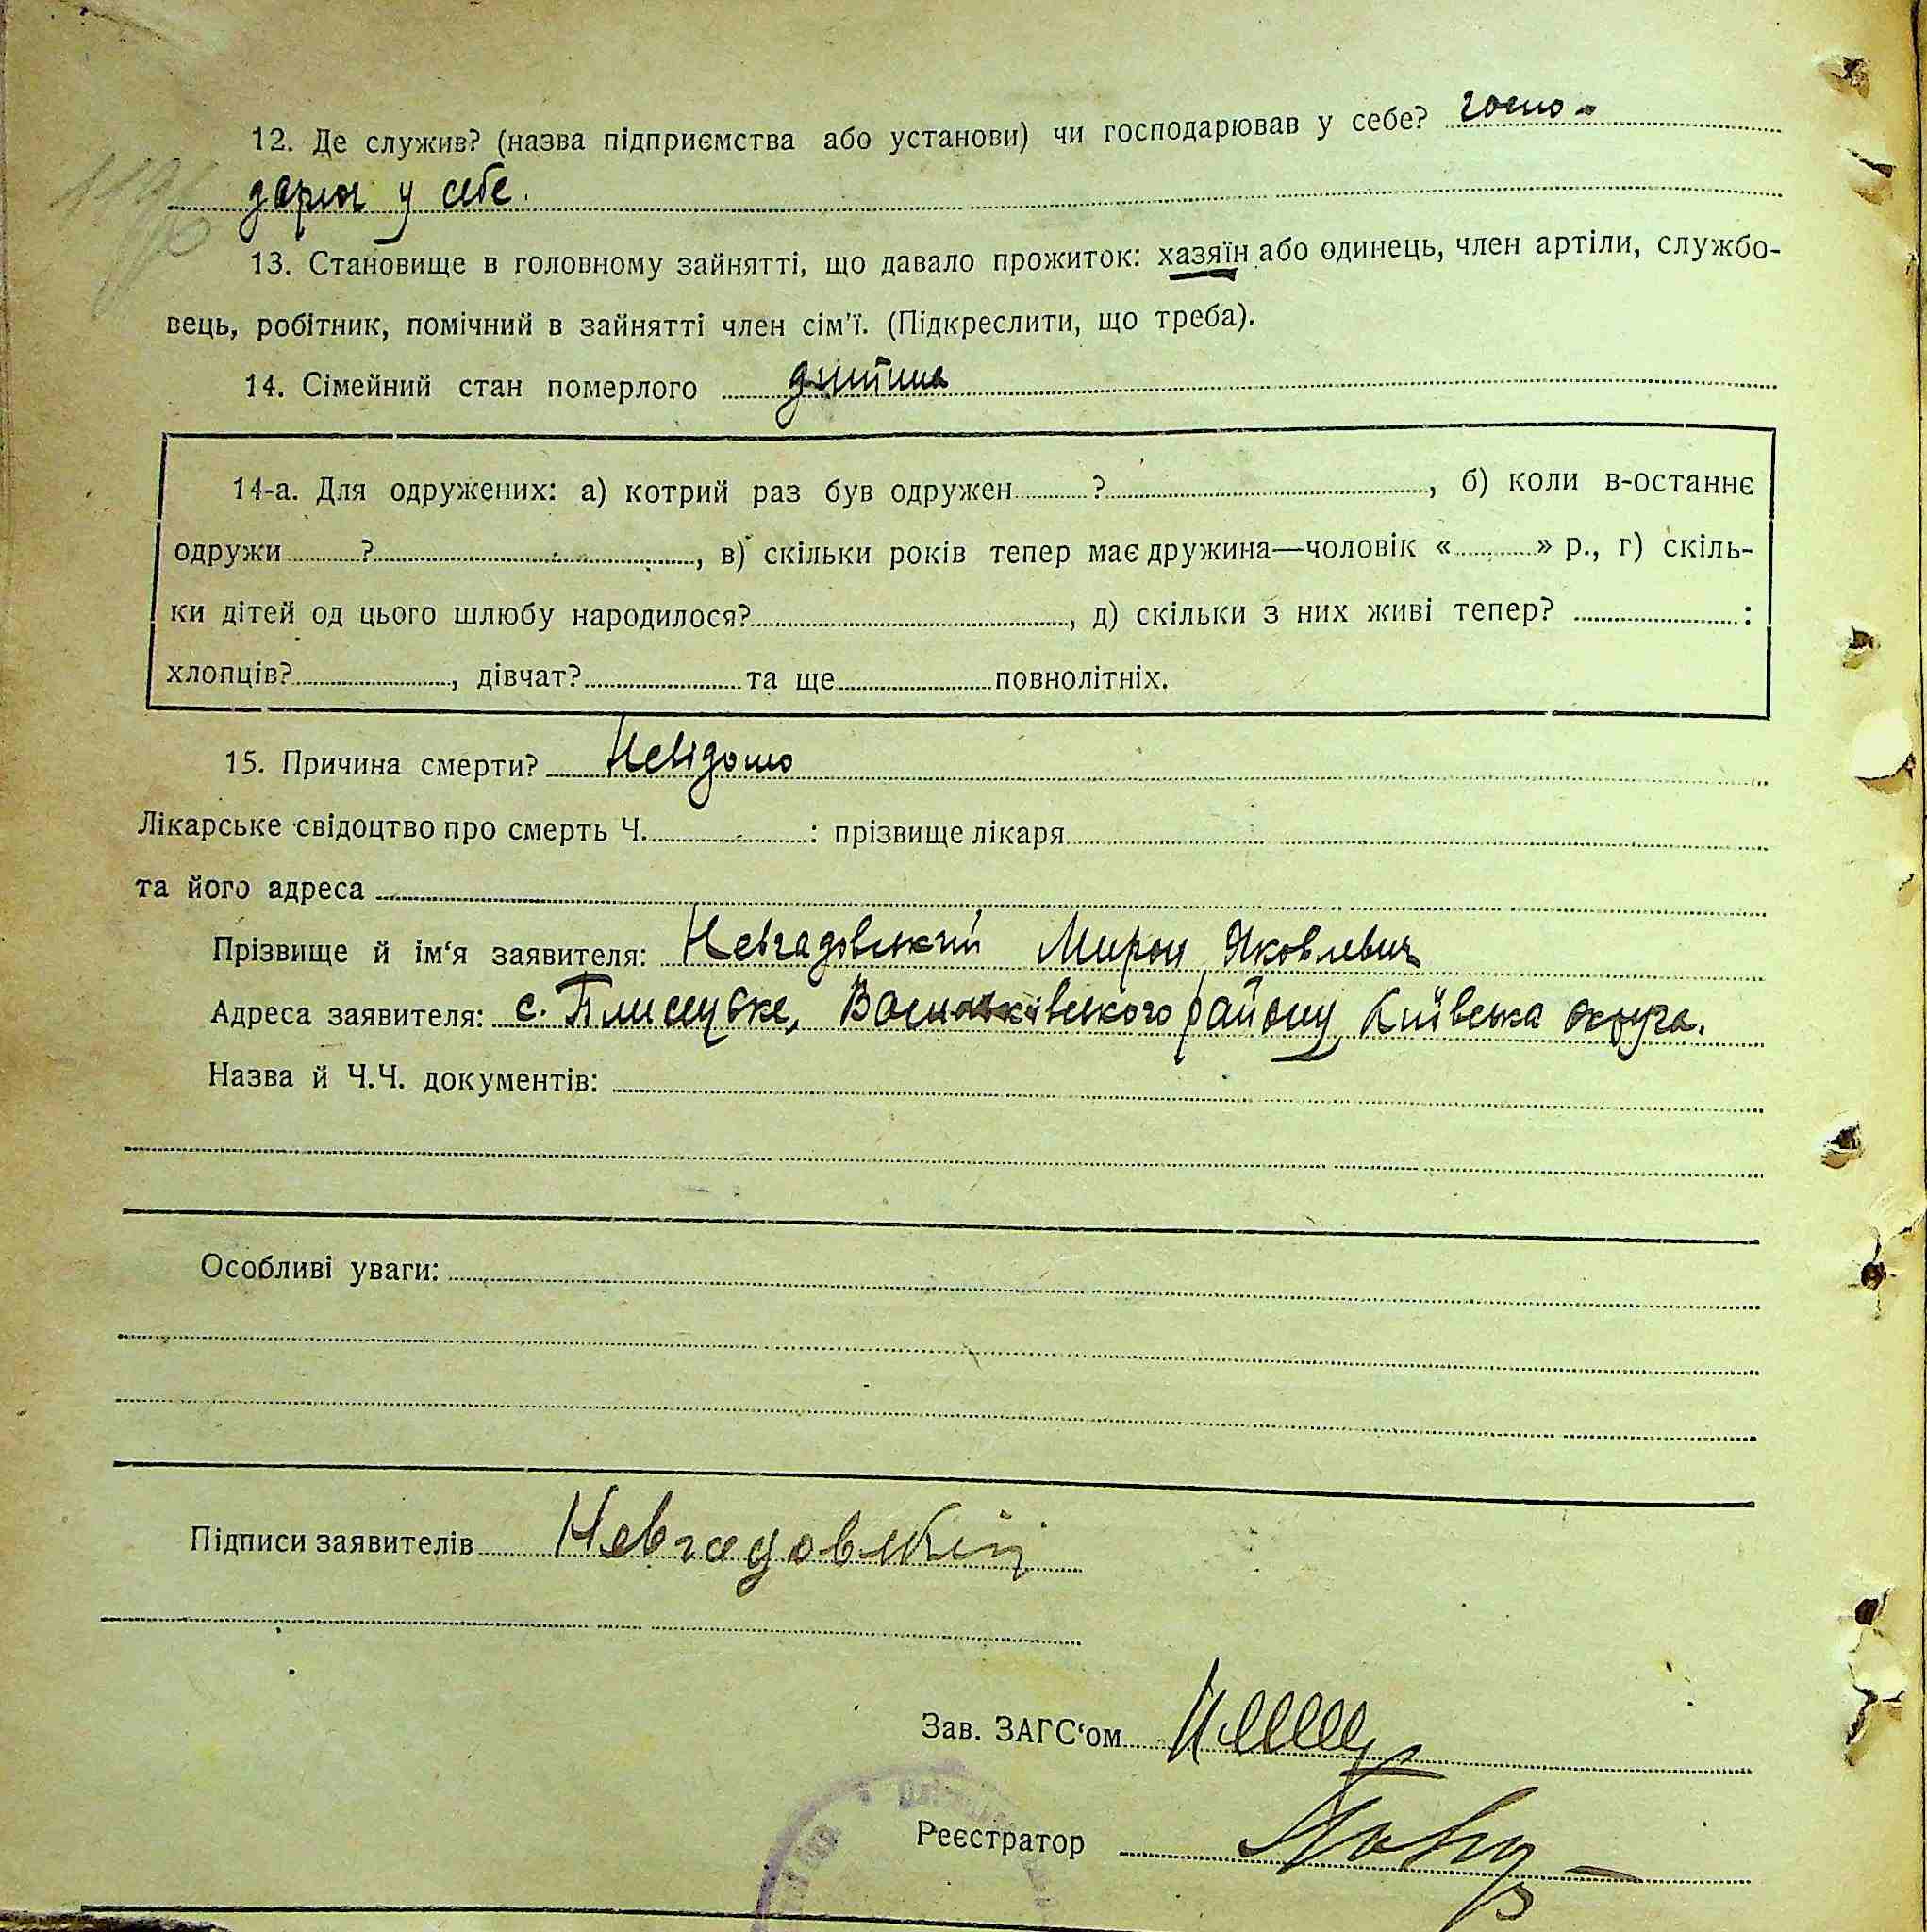 12. Де служив? (назва підприємства або установи) чи господарював у себе? госпо-
дарює у себе.
13. Становище в головному зайнятті, що давало прожиток: хазяїн або одинець, член артіли, службо-
вець, робітник, помічний в зайнятті член сім'ї. (Підкреслити, що треба).
14. Сімейний стан померлого дитина
14-а. Для одружених: а) котрий раз був одружен ?, б) коли в-останнє
одружи ?, в) скільки років тепер має дружина—чоловік « » р., г) скіль-
ки дітей од цього шлюбу народилося?, д) скільки з них живі тепер? :
хлопців?, дівчат? та ще повнолітніх.
15. Причина смерти? Невідомо
Лікарське свідоцтво про смерть Ч. : прізвище лікаря
та його адреса
Прізвище й ім'я заявителя: Невгадовський Мирон Яковлевич
Адреса заявителя: с. Плисецьке, району Київська округа.
Назва й Ч.Ч. документів:
Особливі уваги:
Підписи заявителів Невгадовский
Зав. ЗАГС'ом
Реєстратор